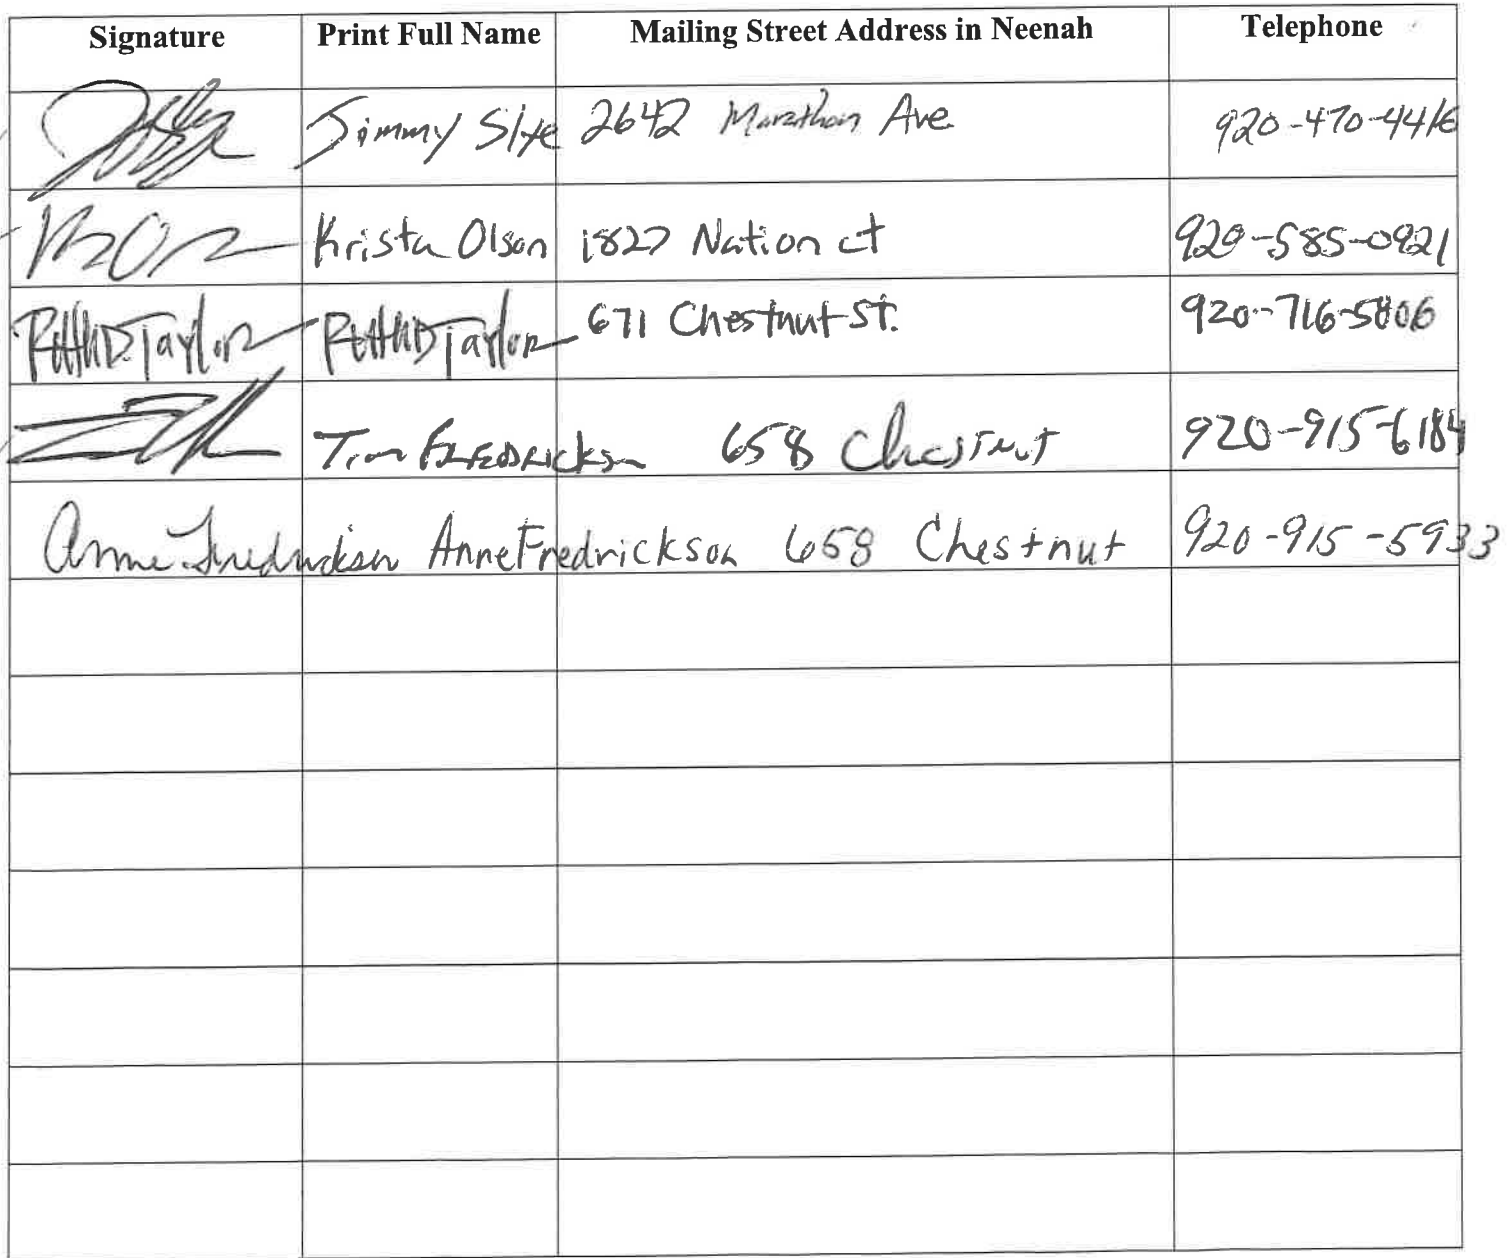 Signature Print Full Name Mailing Street Address in Neenah Telephone
Jimmy Slye 2642 Marathon Ave 920-470-4416
Krista Olson 1827 Nation ct 920-585-0921
Taylor Taylor 671 Chestnut St. 920-716-5806
Tim FREDRICKSon 658 Chestnut 920-915-6184
Anne Fredrickson Anne Fredrickson 658 Chestnut 920-915-5933